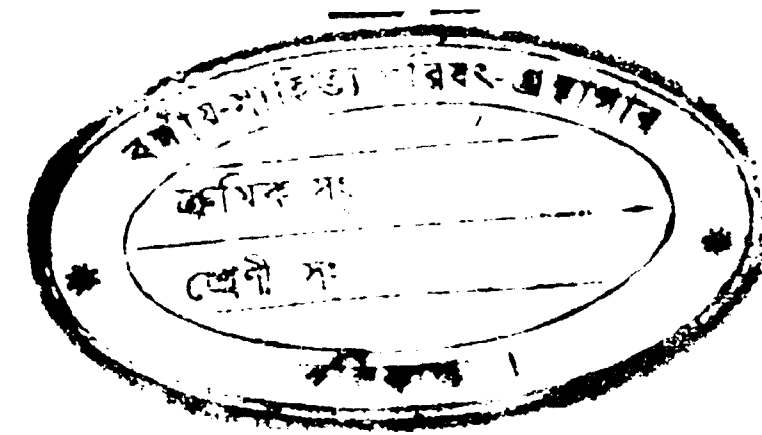 বঙ্গীয়-সাহিত্য পরিষৎ-গ্রন্থাগার
ক্রমিক সং
শ্রেণী সং